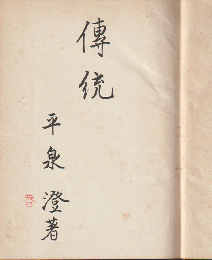 傳統
平泉澄著